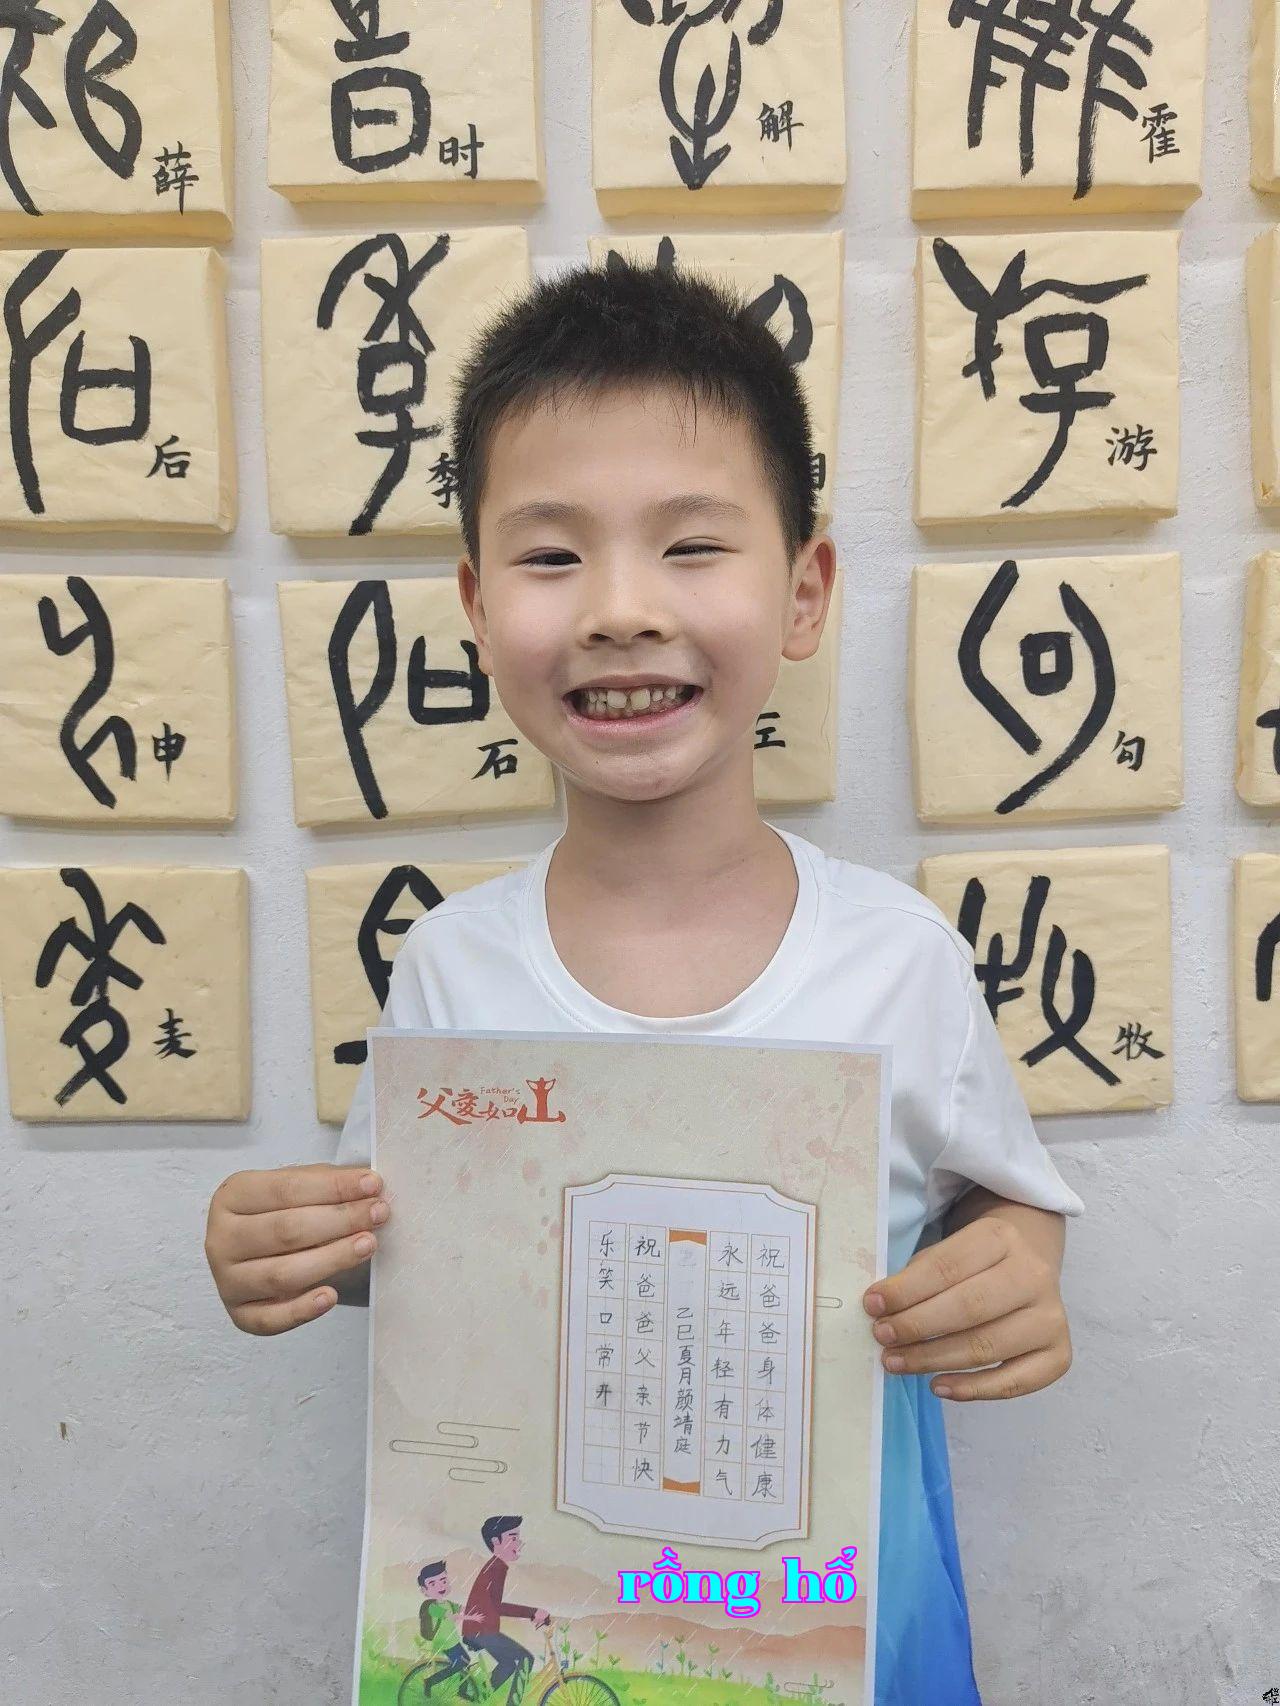 薛
时
解
霍
后
季
游
申
石
勾
麦
牧
父爱如山
Father's
Day
祝爸爸身体健康
永远年轻有力气
乙巳夏月颜靖庭
祝爸爸父亲节快
乐笑口常开
rồng hổ